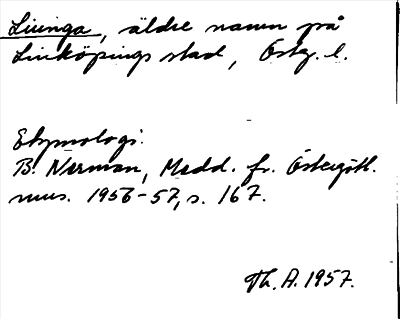 Liunga, äldre namn på
Linköpings stad, Östg. l.
Etymologi:
B. Nerman, Medd. fr. Östergötl.
mus. 1956-57, s. 167.
Th. A. 1957.